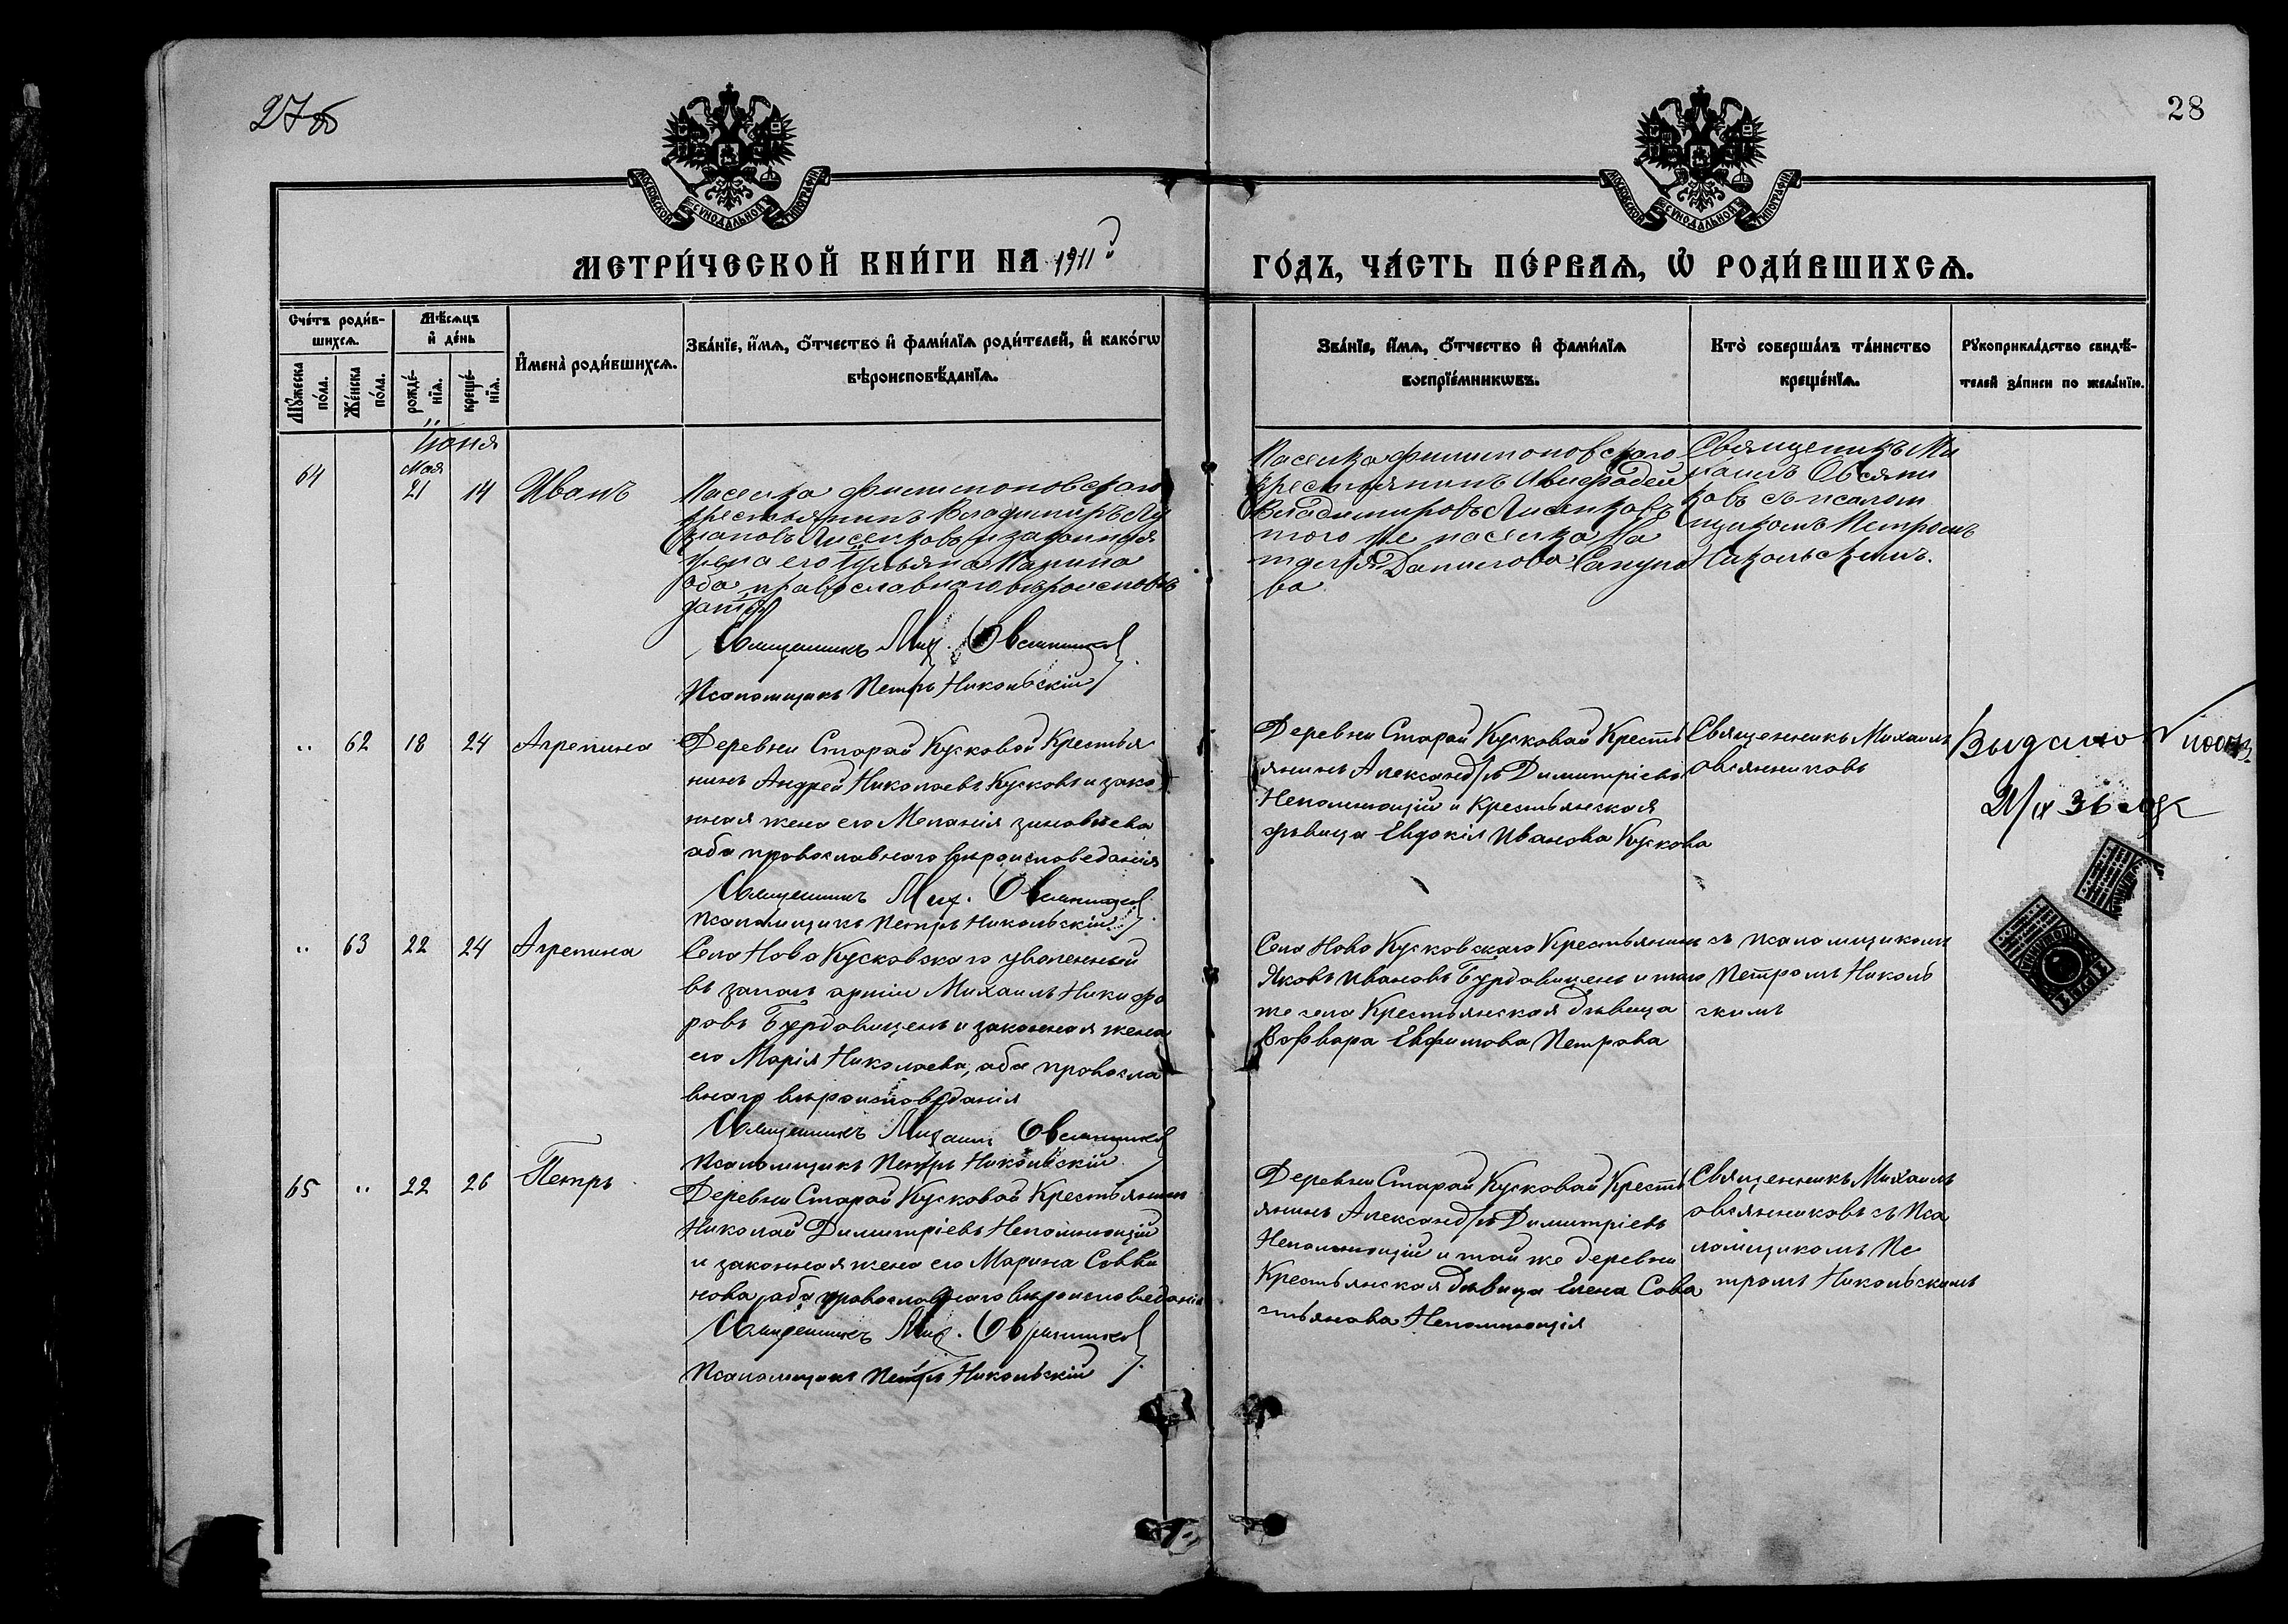 27об
28
МОСКОВСКОЙ СѴНОДАЛЬНОЙ ТИПОГРАФІИ
МОСКОВСКОЙ СѴНОДАЛЬНОЙ ТИПОГРАФІИ
МЕТРИ́ЧЕСКОЙ КНИ́ГИ НА 1911й
ГО́ДЪ, ЧА́СТЬ ПЕ́РВАѦ, Ѡ҆ РОДИ́ВШИХСѦ.
Сче́тъ роди́в-
шихсѧ.
Мѣ́сѧцъ
и҆ де́нь
Мꙋ́жеска
по́ла.
Же́нска
по́ла.
рожде́-
нїѧ.
креще́-
нїѧ.
И҆мена̀ роди́вшихсѧ.
Зва́нїе, и҆́мѧ, ѻ҆́тчество и҆ фами́лїѧ роди́телей, и҆ како́гѡ
вѣроисповѣ́данїѧ.
Зва́нїе, и҆́мѧ, ѻ҆́тчество и҆ фами́лїѧ
воспрїе́мникѡвъ.
Кто̀ соверша́лъ та́инство
креще́нїѧ.
Рꙋкоприкла́дство свидѣ́-
телей за́писи по жела́нїю.
Іюня
Мая
64
21
14
Иванъ
Поселка Филимоновскаго
крестьянинъ Владимиръ Лу
кановъ Лисенковъ и законная
жена его Ульяна Карпова
оба православнаго вѣроисповѣ
данія
Священникъ Мих. Овсянниковъ
Псаломщикъ Петръ Никольскій
Поселка Филимоновскаго
крестьянинъ
Владимировъ Лисенковъ
того же поселка Ма
Данилова Сапуно
ва
Священникъ Ми
хаилъ Овсянни
ковъ съ псалом
щикомъ Петромъ
Никольскимъ.
"
62
18
24
Агрепина
Деревни Старой Кусковой Крестья
нинъ Андрей Николаевъ Кусковъ и зако
нная жена его Меланія Зиновьева
оба православнаго вѣроисповеданія
Священникъ Мих. Овсянниковъ
Псаломщикъ Петръ Никольскій
Деревни Старой Кусковой Кресть
янинъ Александръ Димитріевъ
Непомнющій и Крестьянская
дѣвица Евдокія Иванова Кускова
Священникъ Михаилъ
Овсянниковъ
Выдано
"
63
22
24
Агрепина
Села Ново Кусковскаго уволенный
въ запасъ арміи Михаилъ Никифо
ровъ Бурдовицень и законная жена
его Марія Николаева, оба правосла
внаго вѣроисповѣданія
Священникъ Михаилъ Овсянниковъ
Псаломщикъ Петръ Никольскій
Села Ново Кусковскаго Крестьянинъ
Яковъ Ивановъ Бурдовицень и того
же села Крестьянская дѣвица
Варвара Евфимова Петрова
съ псаломщикомъ
Петромъ Николь
скимъ
65
"
22
26
Петръ
Деревни Старой Кусковой Крестьянинъ
Николай Димитріевъ Непомнющій
и законная жена его Марина Савви
нова, оба православнаго вѣроисповеданія
Священникъ Мих. Овсянниковъ
Псаломщикъ Петръ Никольскій
Деревни Старой Кусковой Кресть
янинъ Александръ Димитріевъ
Непомнющій и той же деревни
Крестьянская дѣвица Елена Сава
стьянова Непомнющія
Священникъ Михаилъ
Овсянниковъ съ Пса
ломщикомъ Пе
тромъ Никольскимъ